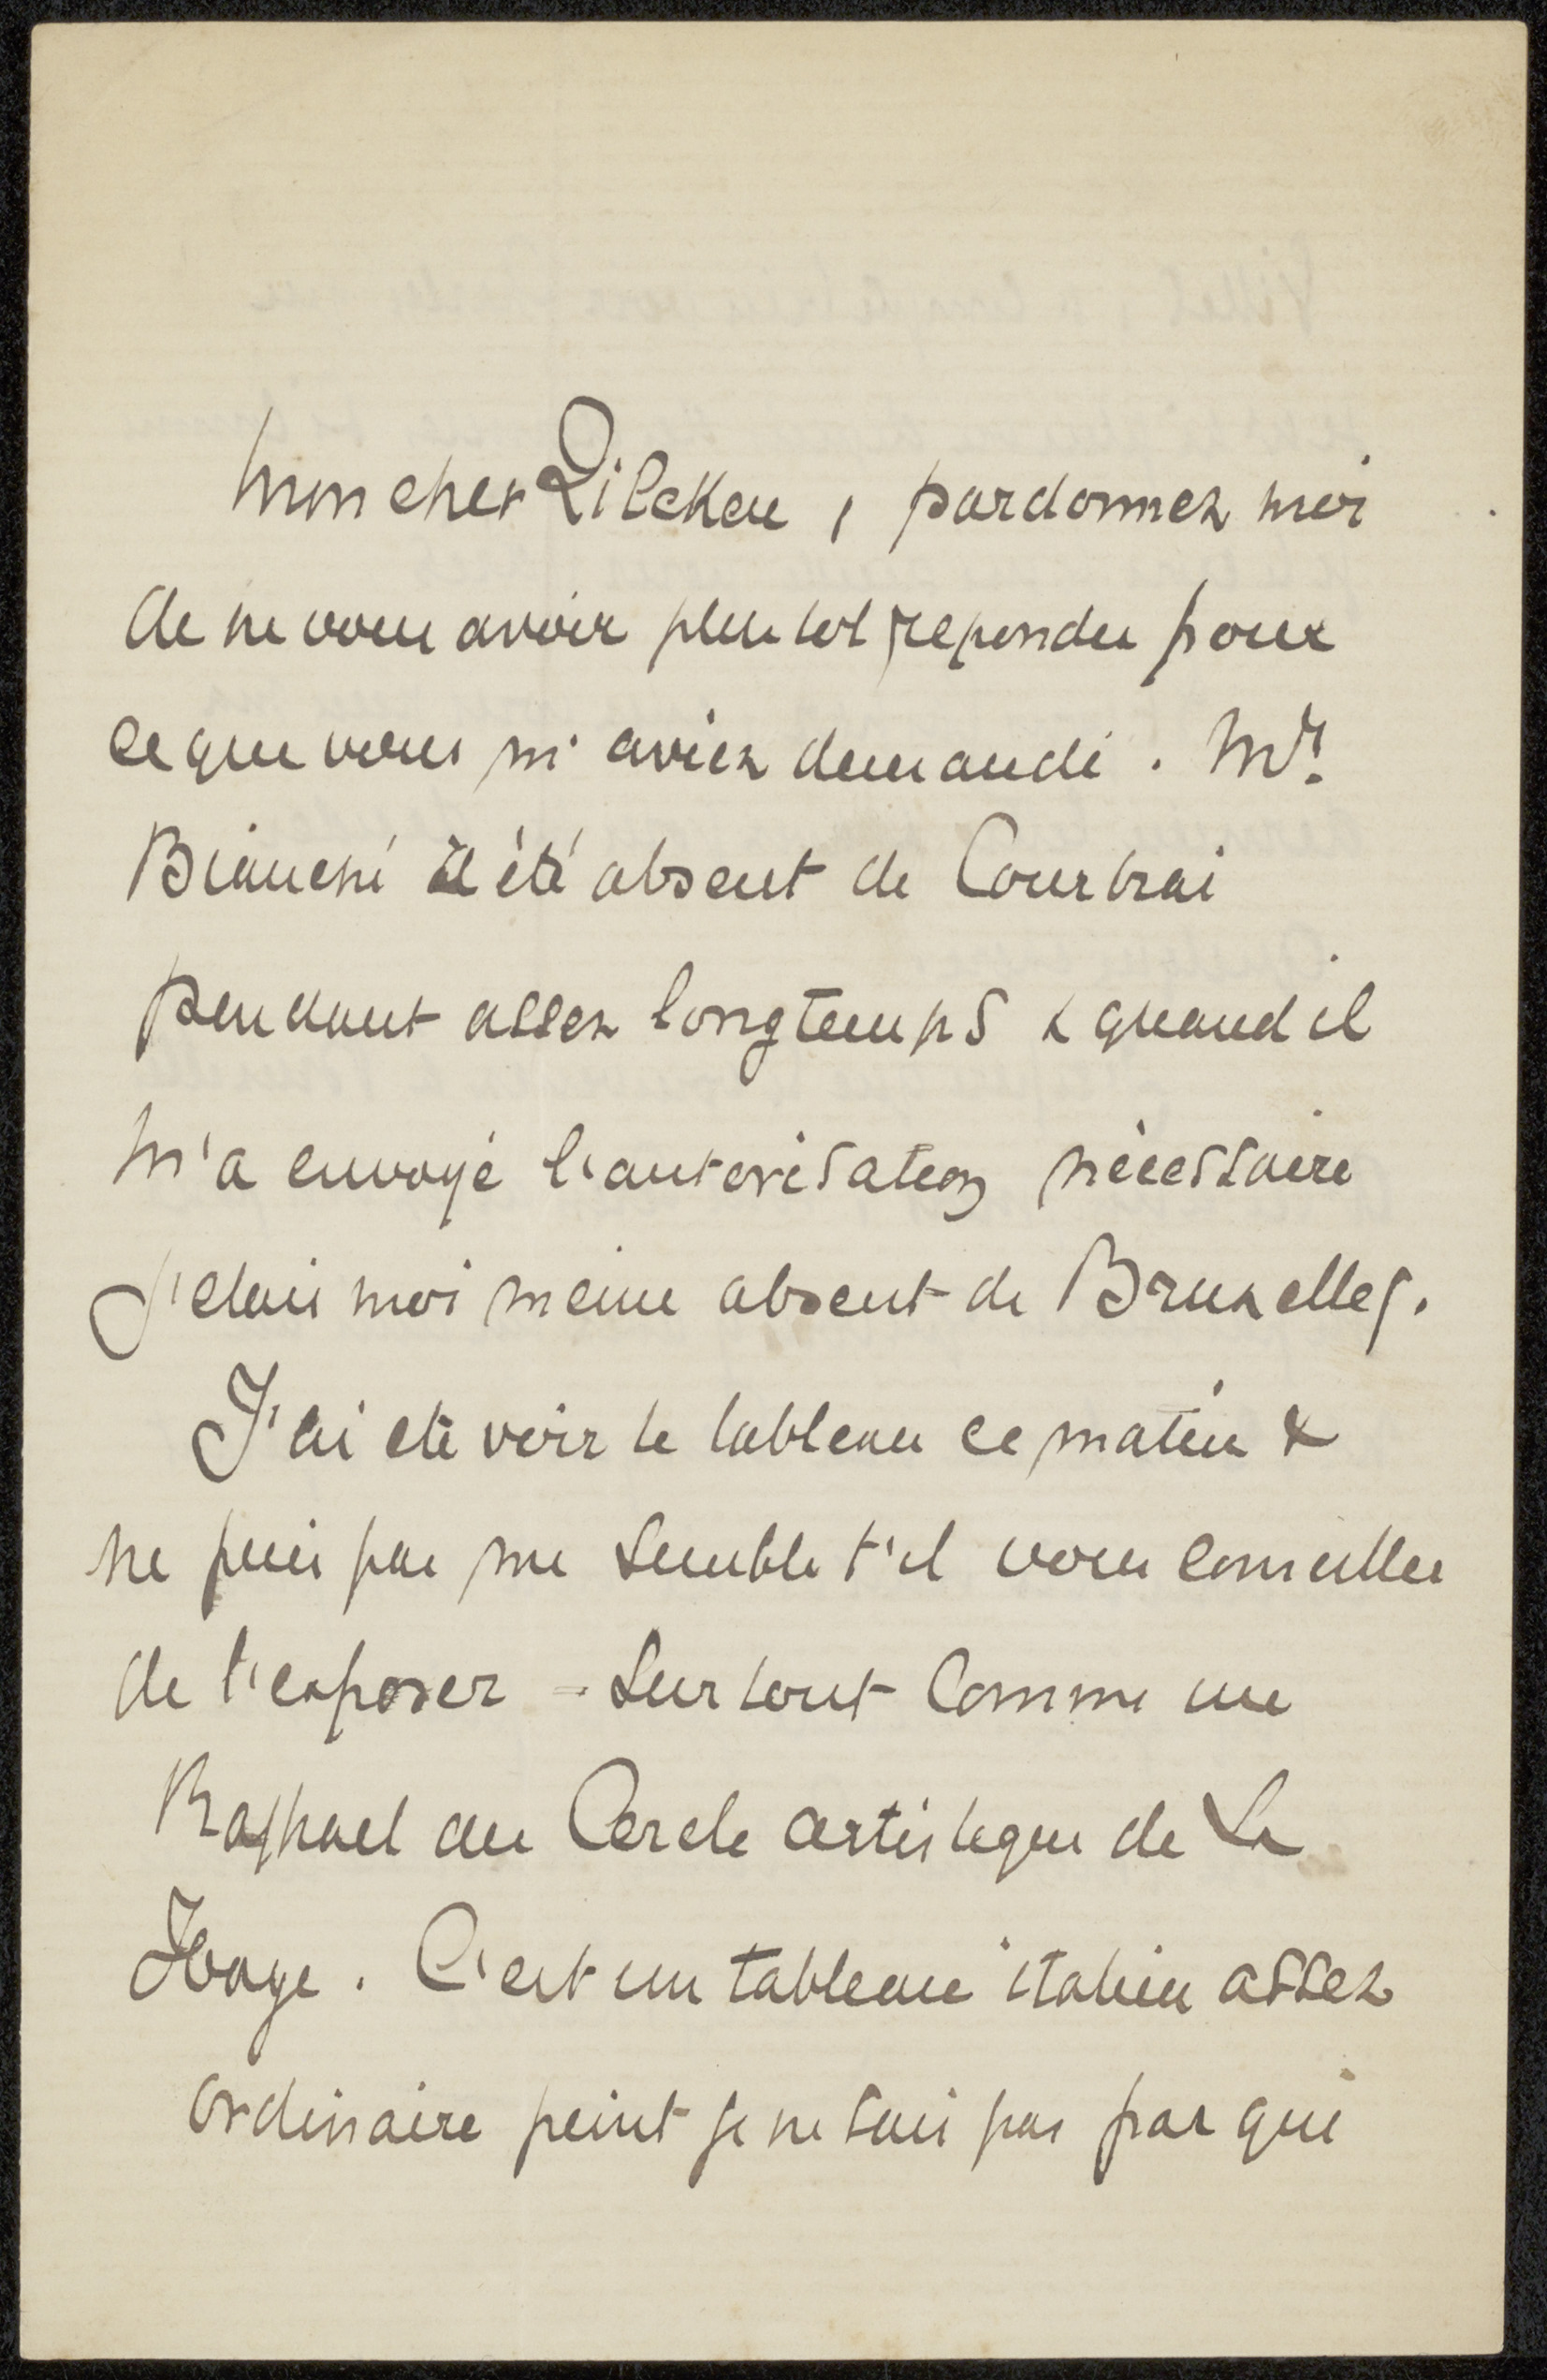 Mon cher Zilcken, pardonnez moi
de ne vous avoir plus tot repondu pour
ce que vous m'aviez demandé. Mr.
Bianchi a été absent de Courtrai
pendant assez longtemps & quand il
m'a envoyé l'autorisation nécessaire
j'etais moi meme absent de Bruxelles.
J'ai eté voir le tableau ce matin &
ne puis pas me semble t'il vous conseiller
de l'exposer - surtout comme un
Raphael au Cercle artistique de La
Haye. C'est un tableau italien assez
ordinaire peint je ne sais pas par qui